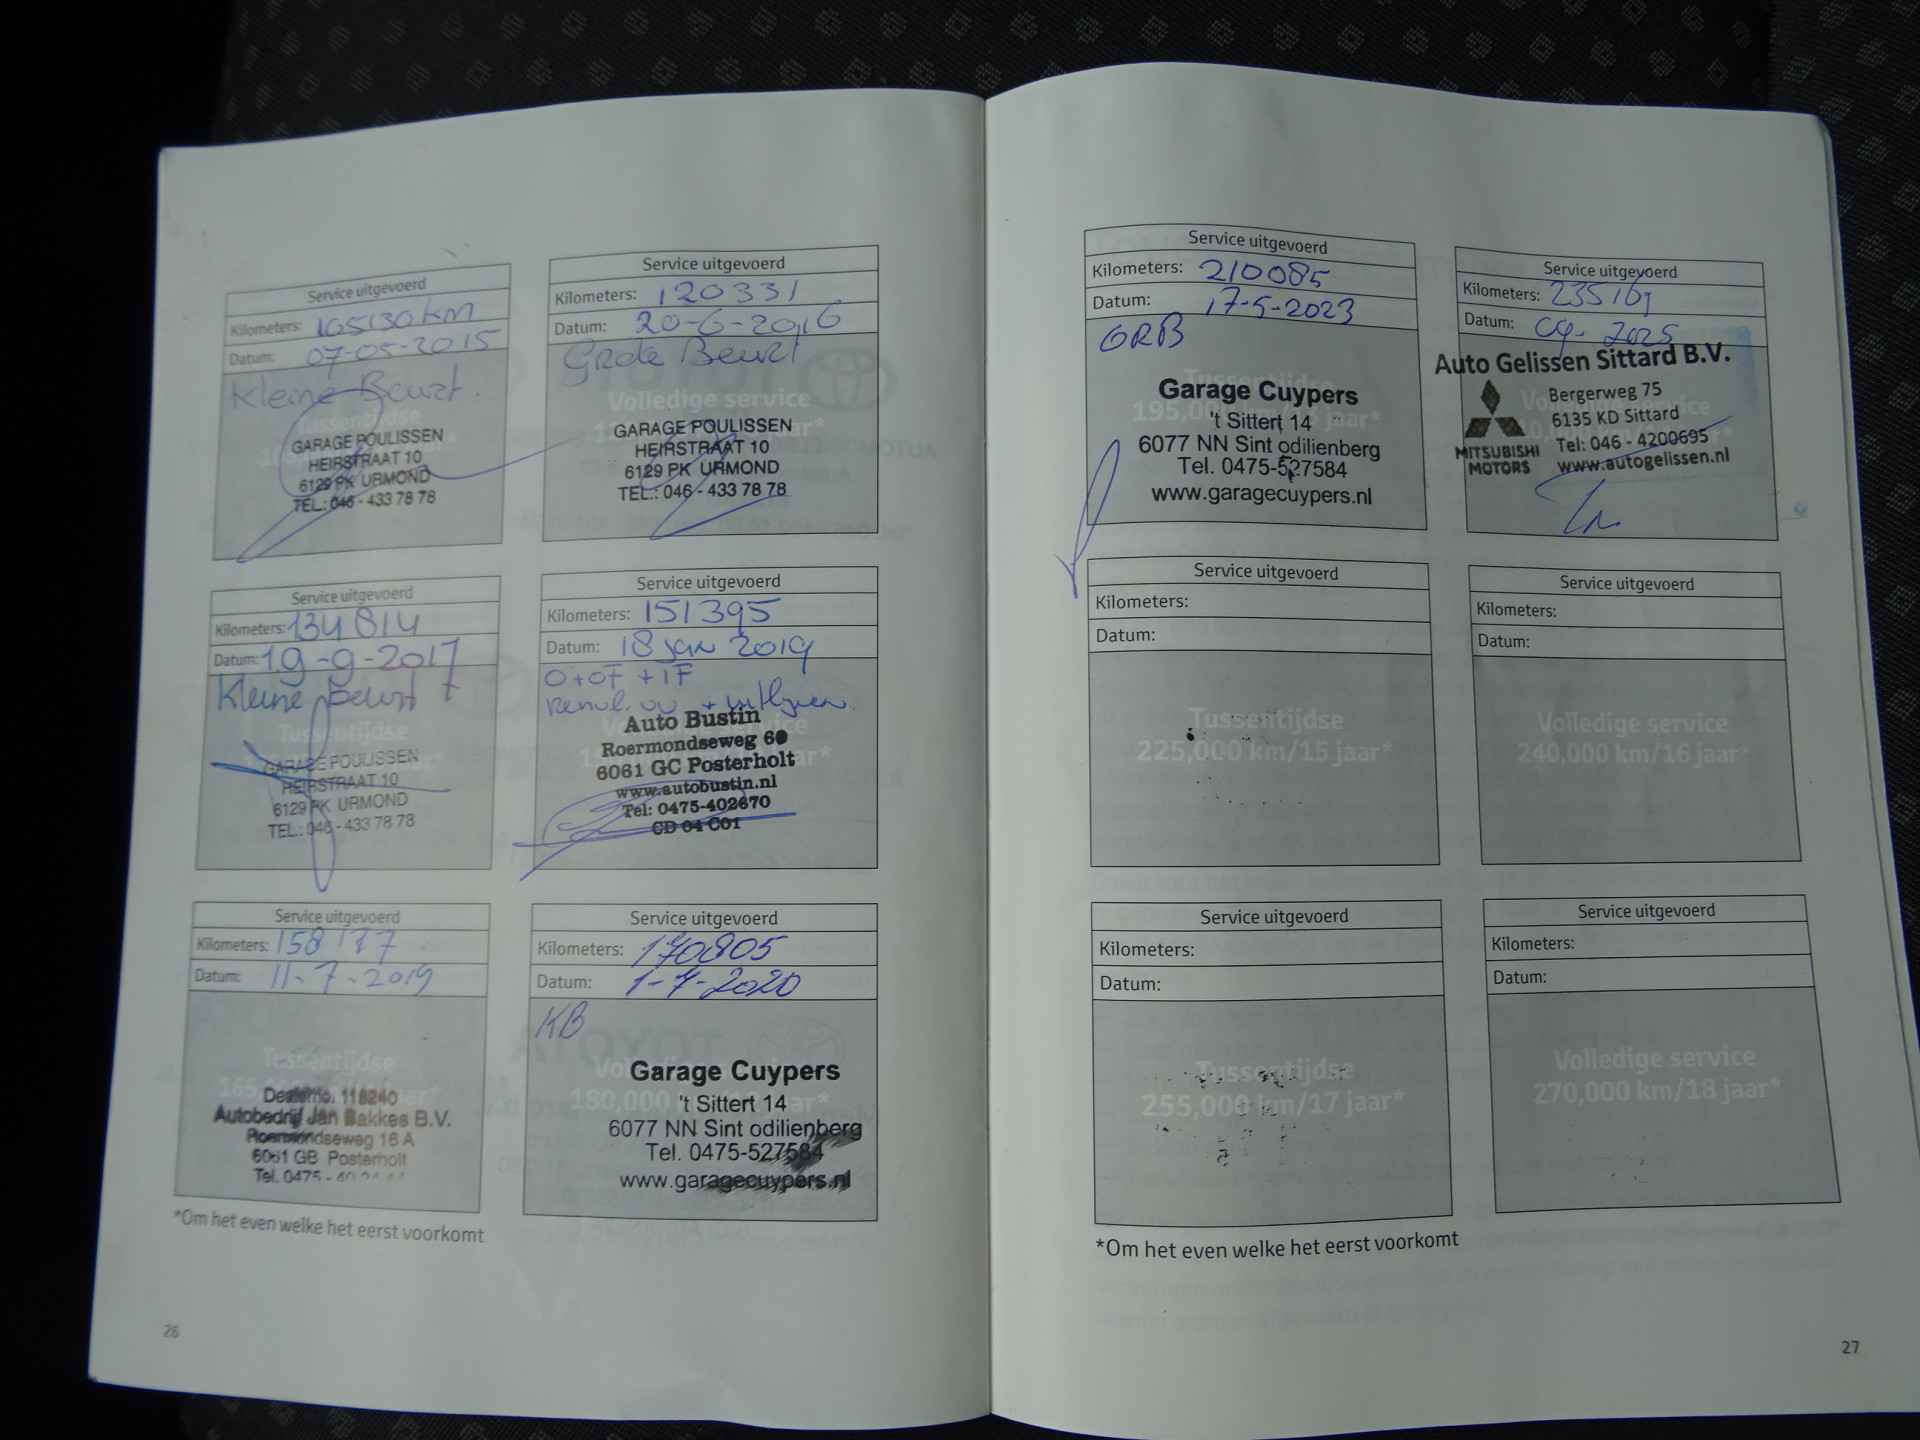 Service uitgevoerd
Kilometers: 105130 km
Datum: 07-05-2015
Kleine Beurt.
Tussentijdse
GARAGE POULISSEN
HEIRSTRAAT 10
6129 PK URMOND
TEL.: 046 - 433 78 78
Service uitgevoerd
Kilometers: 120331
Datum: 20-6-2016
Grote Beurt
Volledige service
GARAGE POULISSEN
HEIRSTRAAT 10
6129 PK URMOND
TEL.: 046 - 433 78 78
Service uitgevoerd
Kilometers: 134814
Datum: 19-9-2017
Kleine Beurt
Tussentijdse
GARAGE POULISSEN
HEIRSTRAAT 10
6129 PK URMOND
TEL.: 046 - 433 78 78
Service uitgevoerd
Kilometers: 151395
Datum: 18 jan 2019
O+OF +IF
Auto Bustin
Roermondseweg 60
6061 GC Posterholt
www.autobustin.nl
Tel: 0475-402670
CD 04 C01
Service uitgevoerd
Kilometers: 158177
Datum: 11-7-2019
Tussentijdse
Dealerno. 118240
Autobedrijf Jan Bakkes B.V.
Roermondseweg 16 A
6061 GB Posterholt
Tel. 0475 -
Service uitgevoerd
Kilometers: 170805
Datum: 1-7-2020
KB
180,000
Garage Cuypers
't Sittert 14
6077 NN Sint odilienberg
Tel. 0475-527584
www.garagecuypers.nl
*Om het even welke het eerst voorkomt
26
Service uitgevoerd
Kilometers: 210085
Datum: 17-5-2023
GRB
Tussentijdse
195,000
Garage Cuypers
't Sittert 14
6077 NN Sint odilienberg
Tel. 0475-527584
www.garagecuypers.nl
Service uitgevoerd
Kilometers: 235169
Datum: 04-2025
Auto Gelissen Sittard B.V.
Bergerweg 75
6135 KD Sittard
Tel: 046 - 4200695
www.autogelissen.nl
MITSUBISHI
MOTORS
Service uitgevoerd
Kilometers:
Datum:
Tussentijdse
225,000 km/15 jaar*
Service uitgevoerd
Kilometers:
Datum:
Volledige service
240,000 km/16 jaar*
Service uitgevoerd
Kilometers:
Datum:
Tussentijdse
255,000 km/17 jaar*
Service uitgevoerd
Kilometers:
Datum:
Volledige service
270,000 km/18 jaar*
*Om het even welke het eerst voorkomt
27